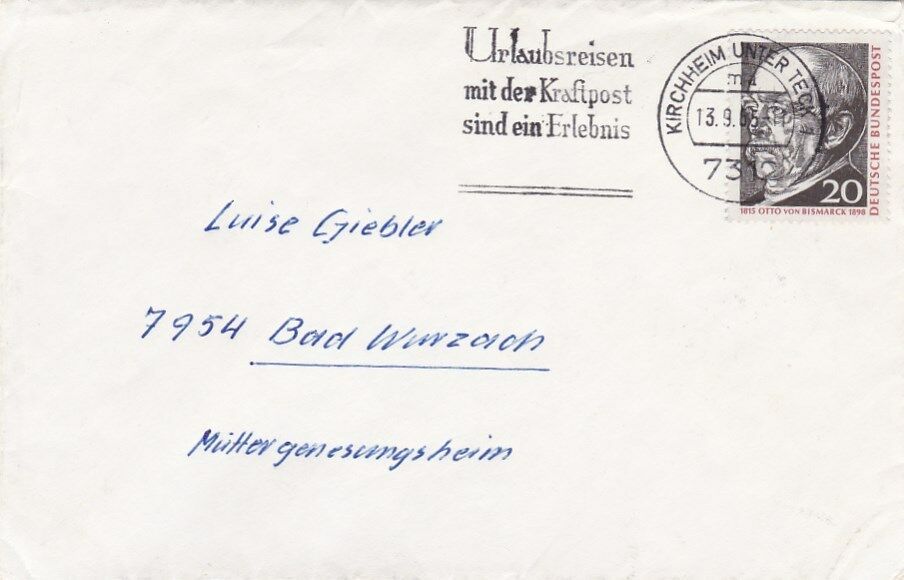 Urlaubsreisen
mit der Kraftpost
sind ein Erlebnis
KIRCHHEIM UNTER TECK 1
ma
13.9.65
731
20
DEUTSCHE BUNDESPOST
1815 OTTO VON BISMARCK 1898
Luise Giebler
7954 Bad Wurzach
Müttergenesungsheim